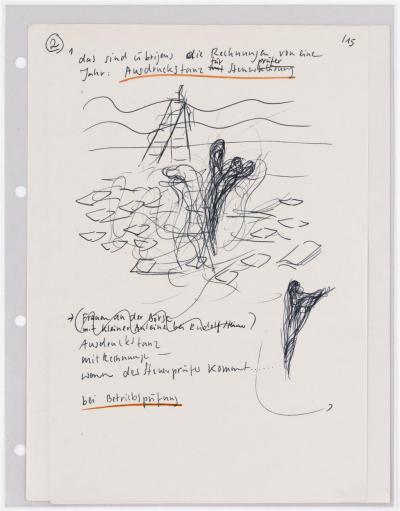 2
/15
1 das sind übrigens die Rechnungen von eine
Jahr: Ausdruckstanz für prüfer
→ (Frauen an der Börse
mit kleiner Anleihe bei Rudolf Steiner)
Ausdruckstanz
mit Rechnunge —
wenn der Steuerprüfer kommt......
bei Betriebsprüfung